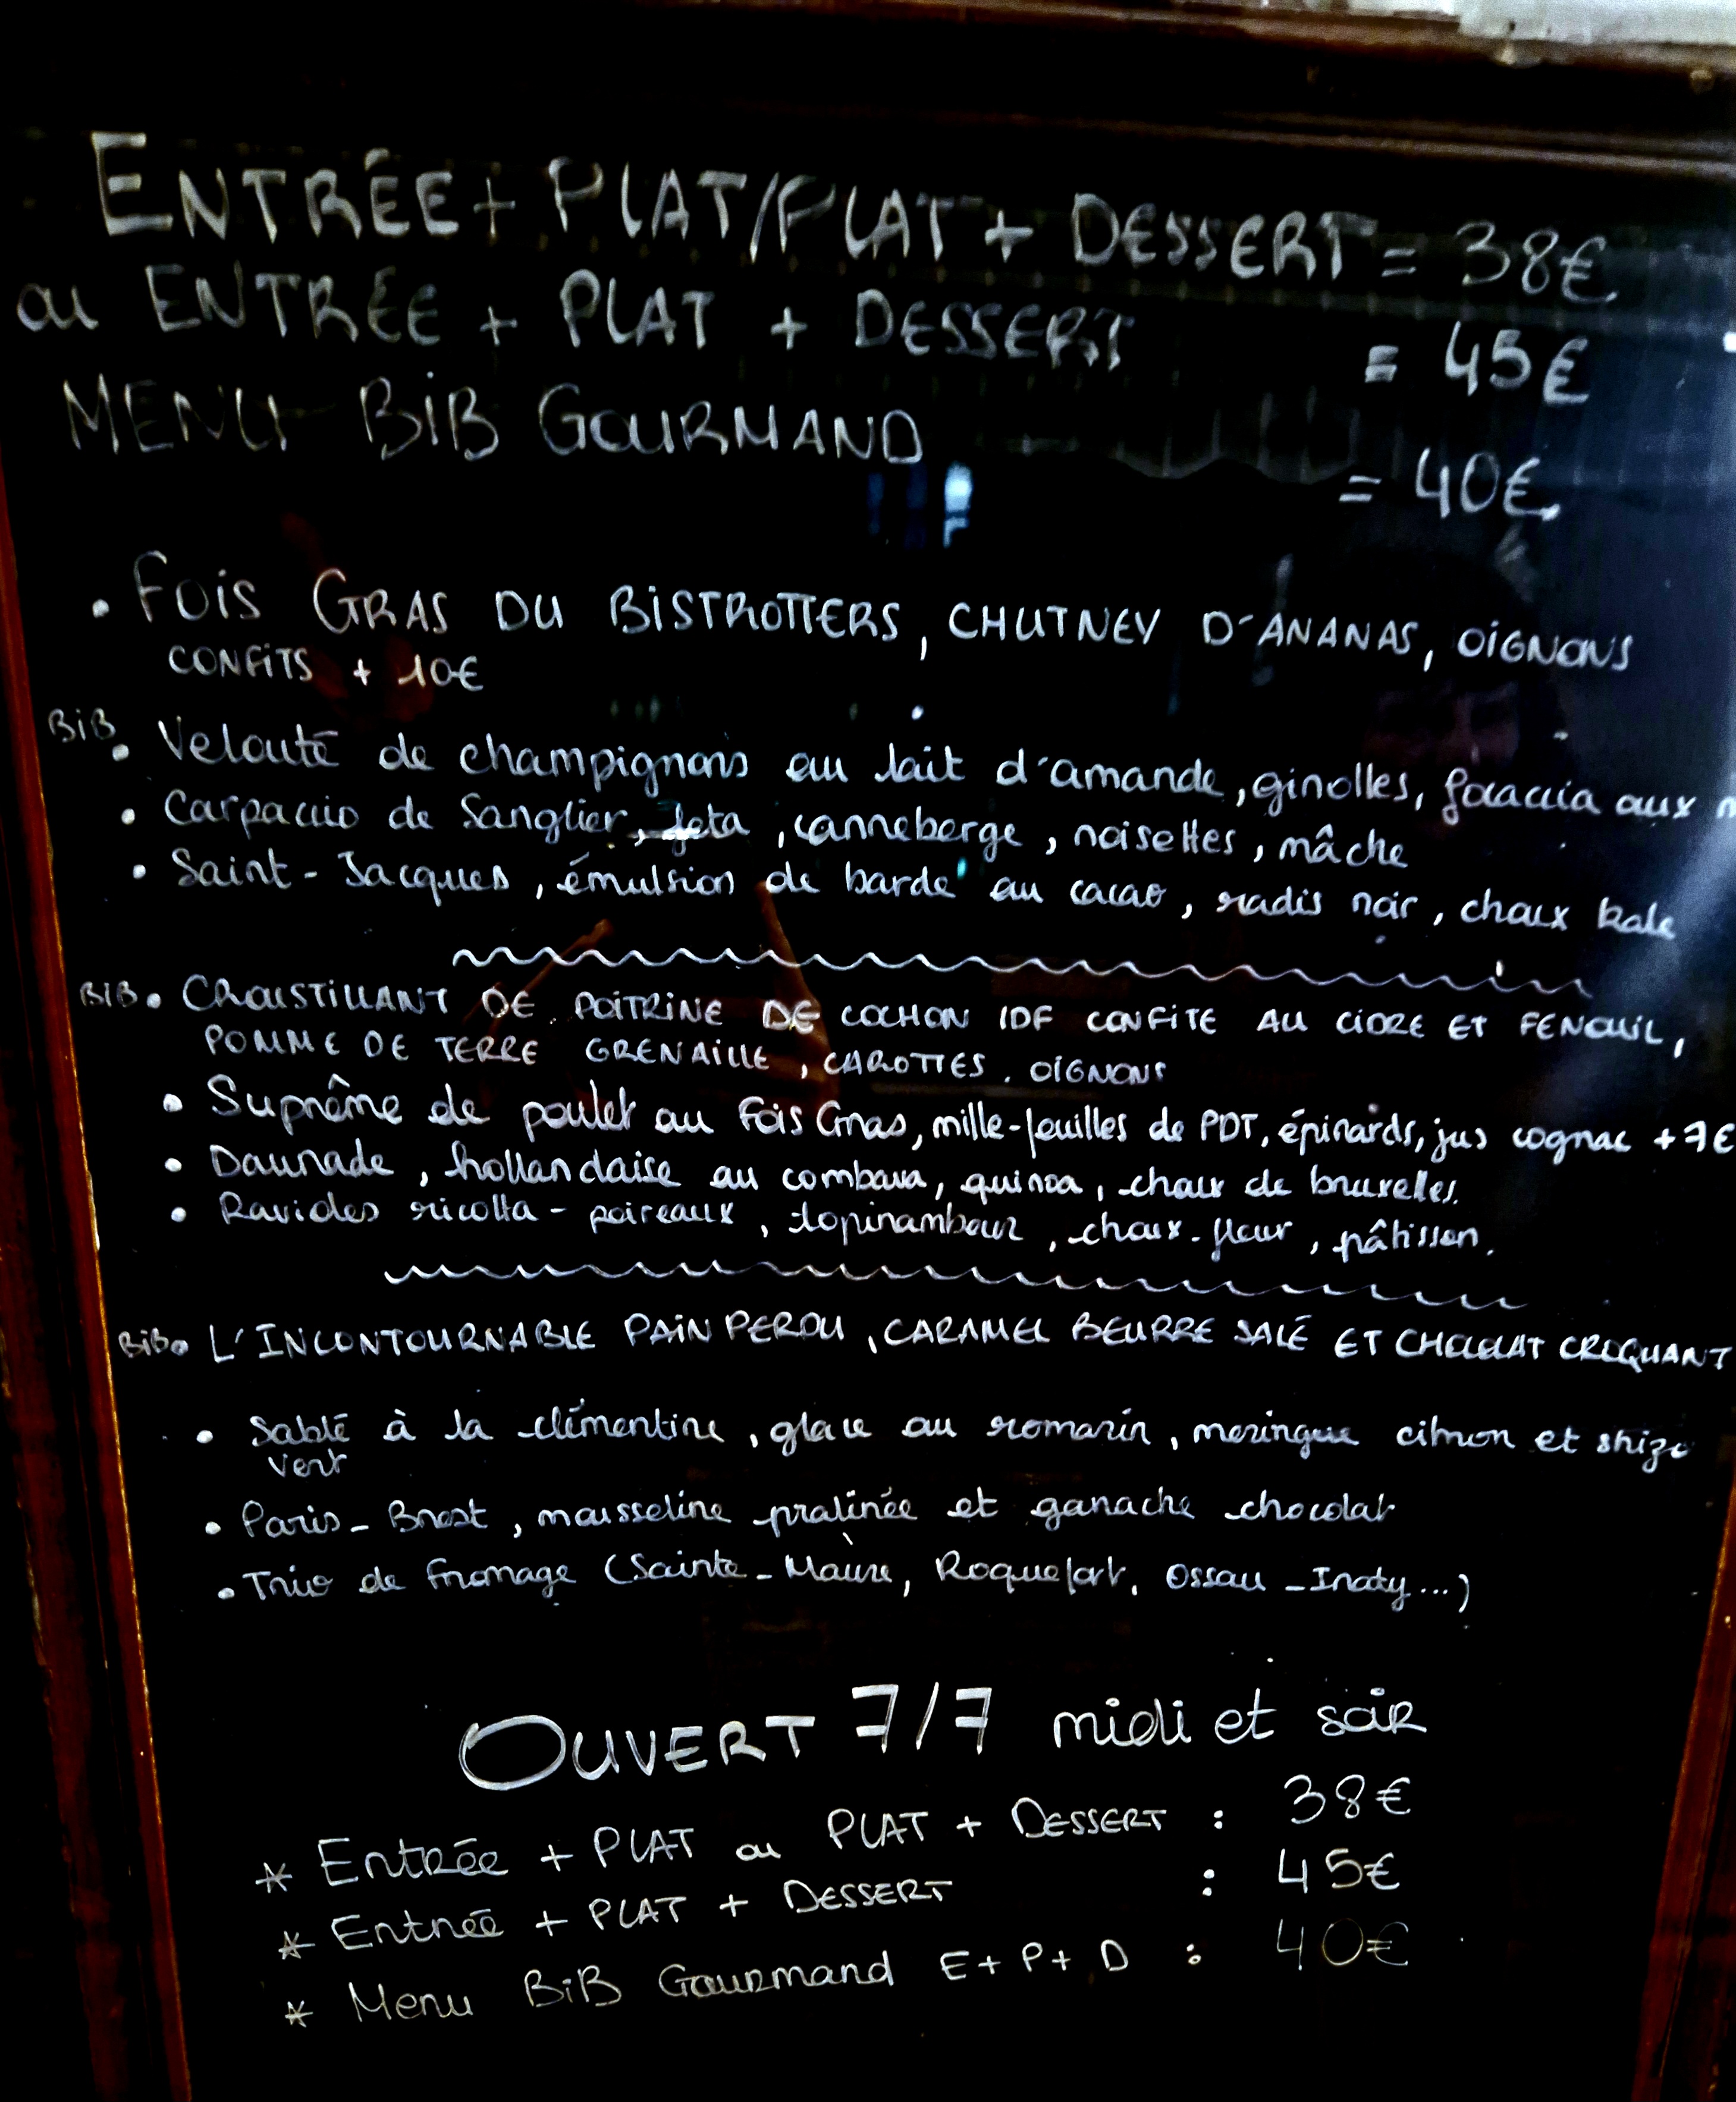 ENTRÉE + PLAT/PLAT + DESSERT = 38€
ou ENTRÉE + PLAT + DESSERT = 45€
MENU BiB GOURMAND = 40€
• FOiS GRAS DU BiSTROTTERS, CHUTNEY D'ANANAS, OiGNONS
CONFiTS + 10€
BiB • Velouté de champignons au lait d'amande, girolles, focaccia aux
• Carpaccio de Sanglier, feta, canneberge, noisettes, mâche
• Saint-Jacques, émulsion de barde au cacao, radis noir, choux kale
BiB • CROUSTILLANT DE POiTRINE DE COCHON IDF CONFITE AU CIDRE ET FENOUIL,
POMME DE TERRE GRENAILLE, CAROTTES, OIGNONS
• Suprême de poulet au Fois Gras, mille-feuilles de PDT, épinards, jus cognac +7€
• Daurade, hollandaise au combava, quinoa, choux de bruxelles.
• Ravioles ricotta - poireaux, topinambour, choux-fleur, pâtisson.
BiB • L'INCONTOURNABLE PAIN PERDU, CARAMEL BEURRE SALÉ ET CHOCOLAT CROQUANT
• Sablé à la clémentine, glace au romarin, meringue citron et shizo
vert
• Paris-Brest, mousseline pralinée et ganache chocolat
• Trio de fromage (Sainte-Maure, Roquefort, Ossau-Iraty...)
OUVERT 7/7 midi et soir
* Entrée + PLAT ou PLAT + DESSERT : 38€
* Entrée + PLAT + DESSERT : 45€
* Menu BiB Gourmand E+P+D : 40€